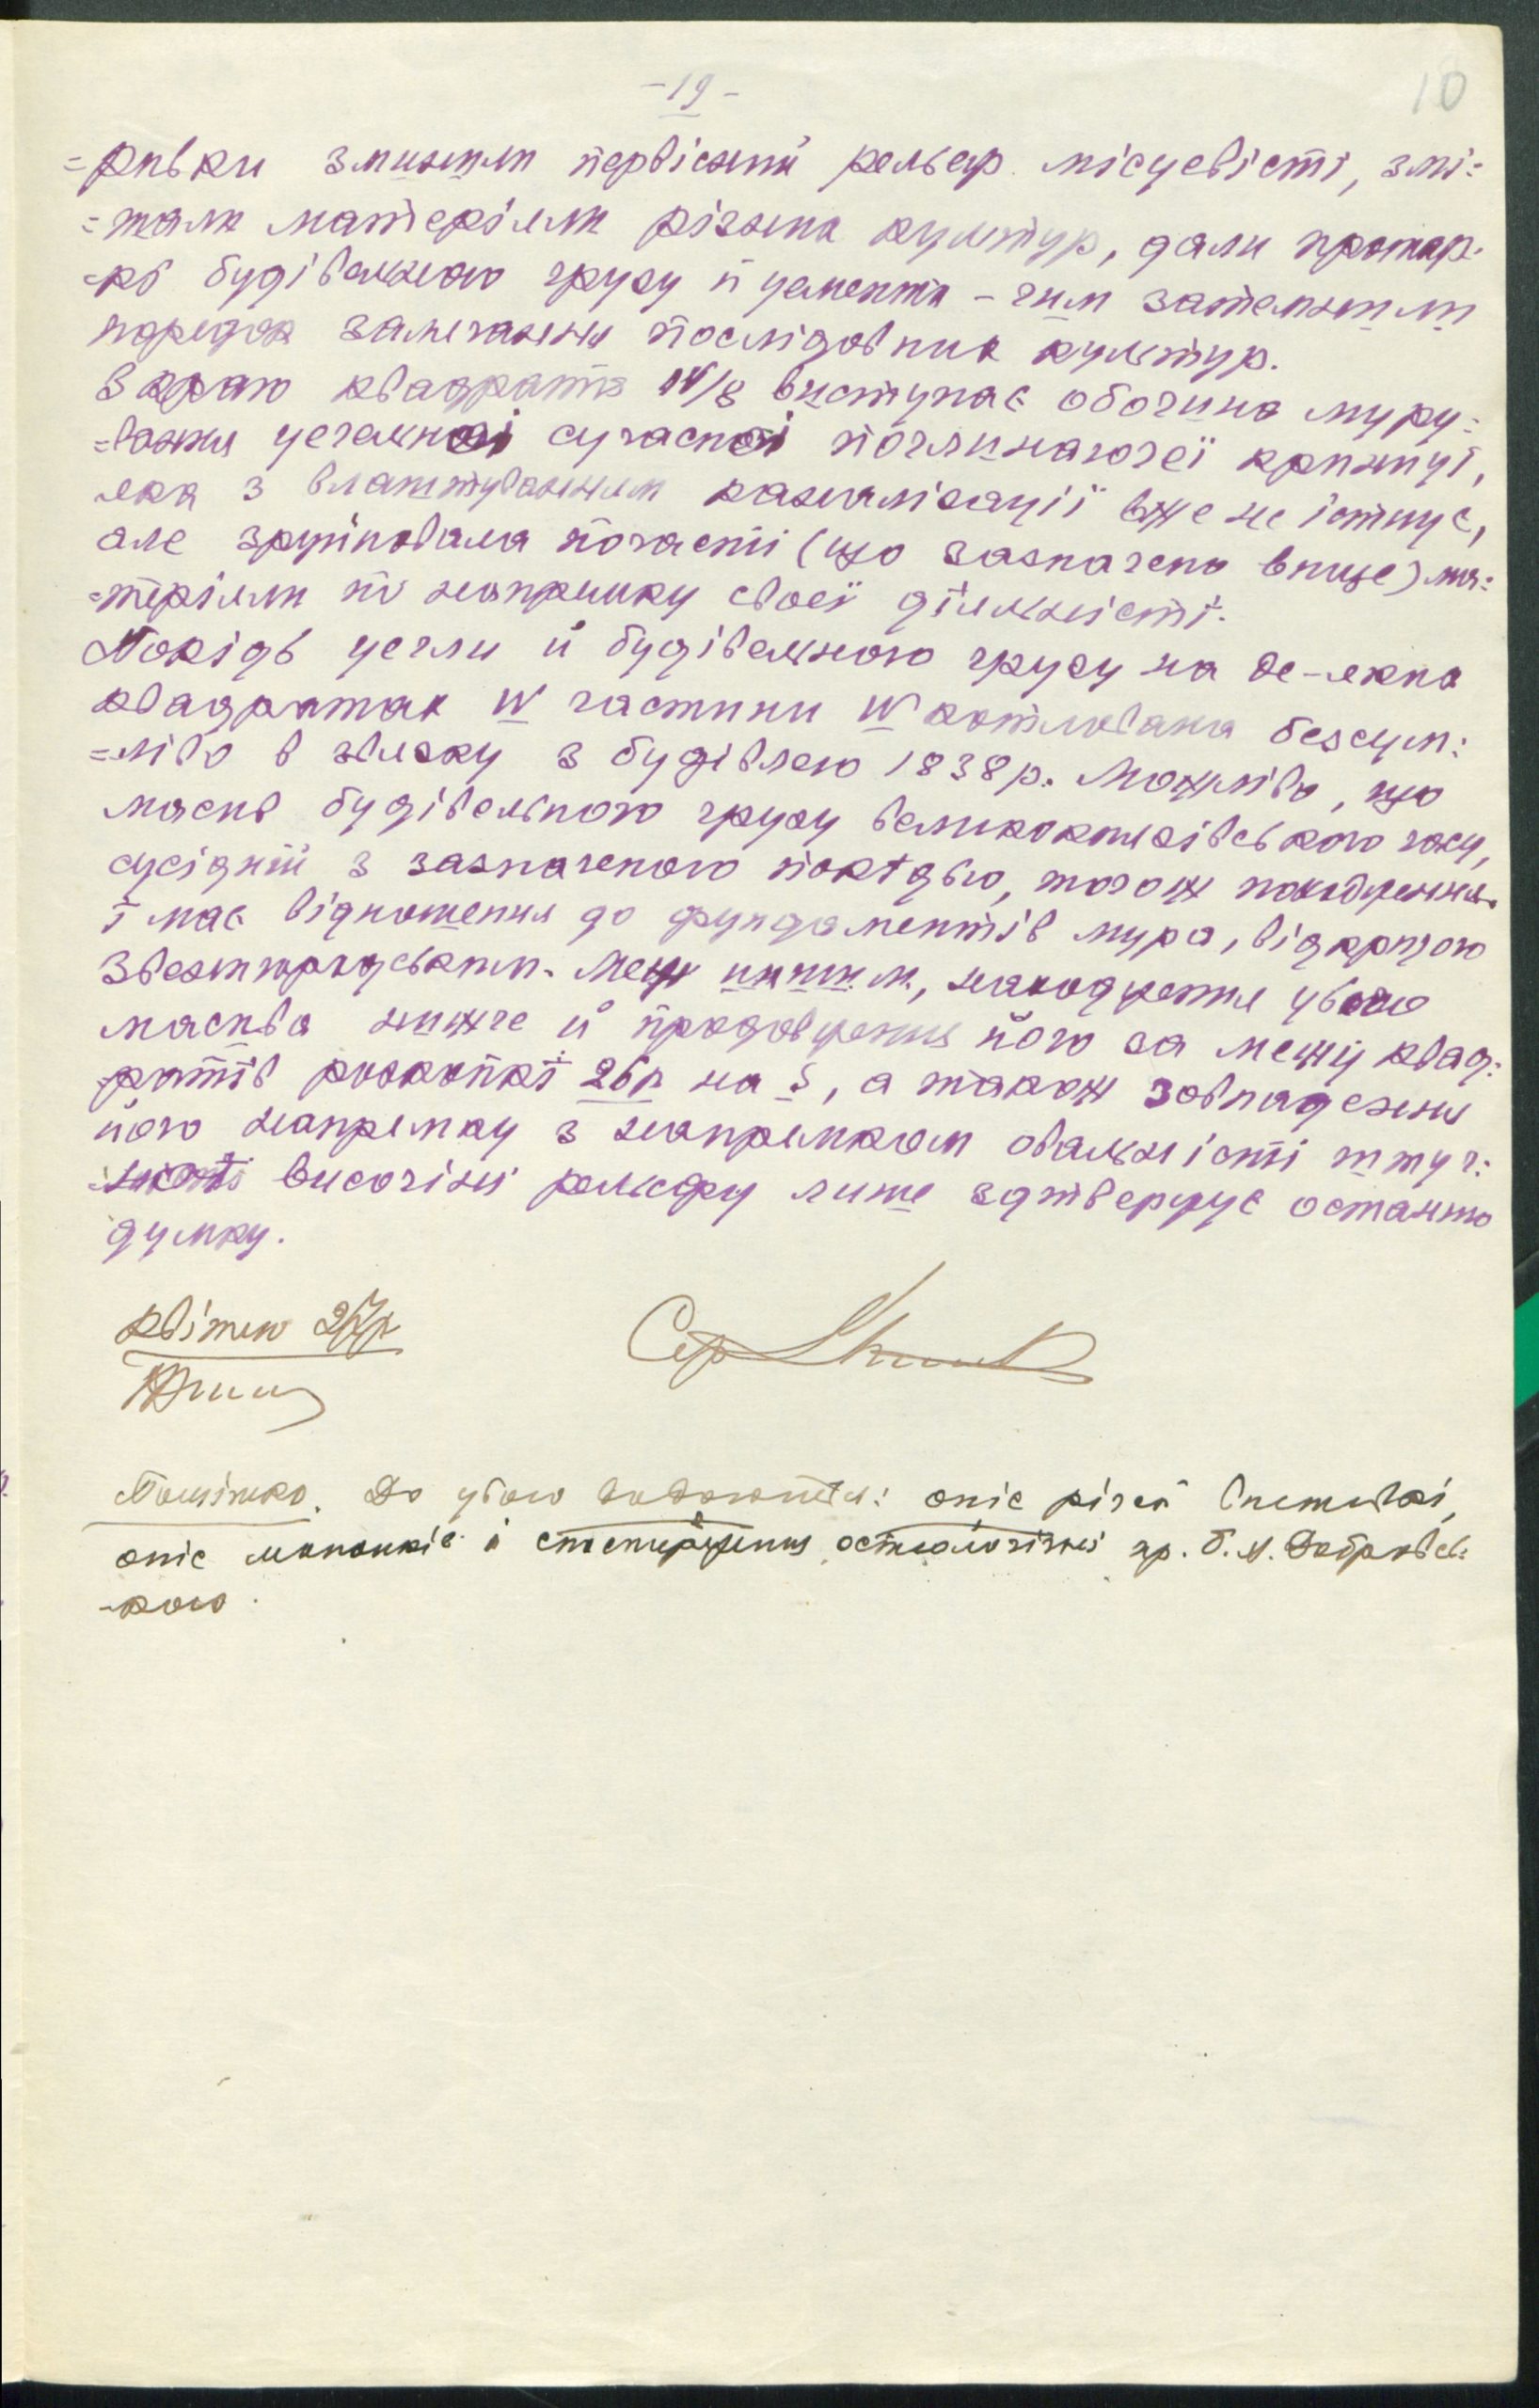 -19-
10
=рывки знизили первісний рельєф місцевісті, змі=
=шали матеріяли різних культур, дали прошар=
=кі будівельного грузу й цемента - чим затемнили
порядок залегання послідовних культур.
З краю квадрата IV/8 виступає обочина муру=
=вання цегельної сучасної поглинаючеї криниці,
яка з влаштуванням каналізації вже не істнує,
але зруйновала почасті (що зазначено вище) ма=
=теріяли по напрямку своєї діяльністі.
Покідь цегли й будівельного грузу на де-яких
квадратах W частини W котлована безсум=
=ніво в звязку з будівлею 1838 р. Можліво, що
масив будівельного грузу великокнязівського часу,
сусідній з зазначеного покідью, того ж походження
і має відношення до фундаментів мура, відкритого
Звенигородським. Між иншим, находження цього
масива нижче й продовження його за межу квад=
ратів роскопкі 26 р на S, а також зовпадення
його напрямку з напрямком овальністі штуч=
ної височіни рельєфу лише здтверджує останню
думку.
квітень 27 р
Київ
Помітка. До цього додається: опіс річей виставкі,
опіс малюнків і ствердження остеологічні пр. В. М. Добровсь=
-кого.